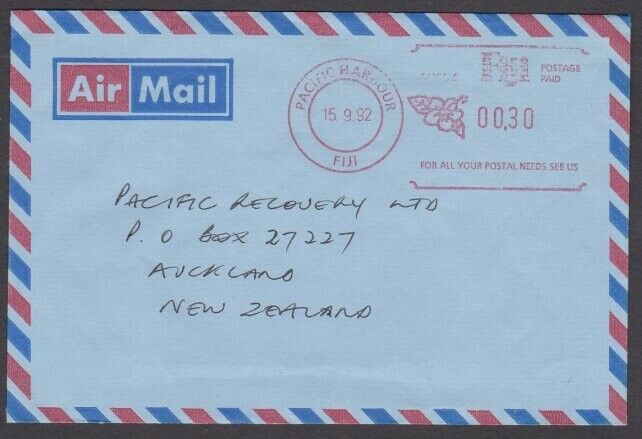 Air Mail
PACIFIC HARBOUR
15.9.92
FIJI
Fiji
POSTAGE
PAID
00.30
FOR ALL YOUR POSTAL NEEDS SEE US
PACIFIC RECOVERY LTD
P.O BOX 27227
AUCKLAND
NEW ZEALAND